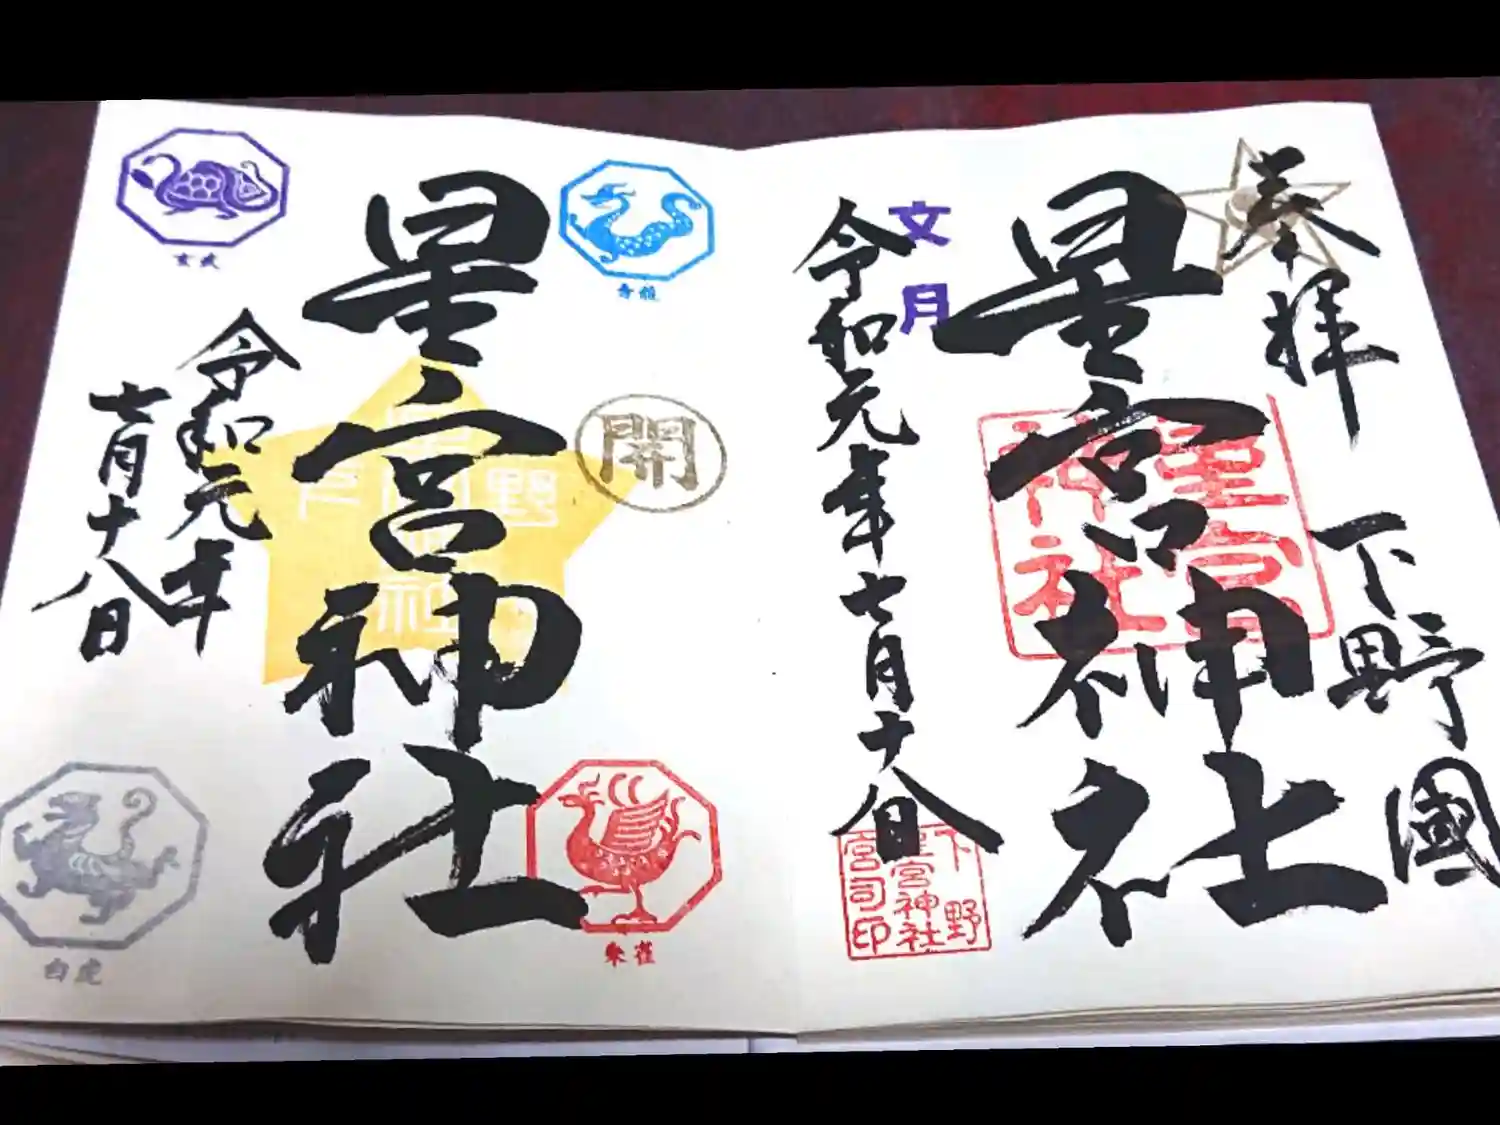 奉拝
下野國
星宮神社
星宮
神社
文月
令和元年七月十八日
下野
星宮神社
宮司印
青龍
開
朱雀
星宮神社
令和元年
七月十八日
玄武
白虎